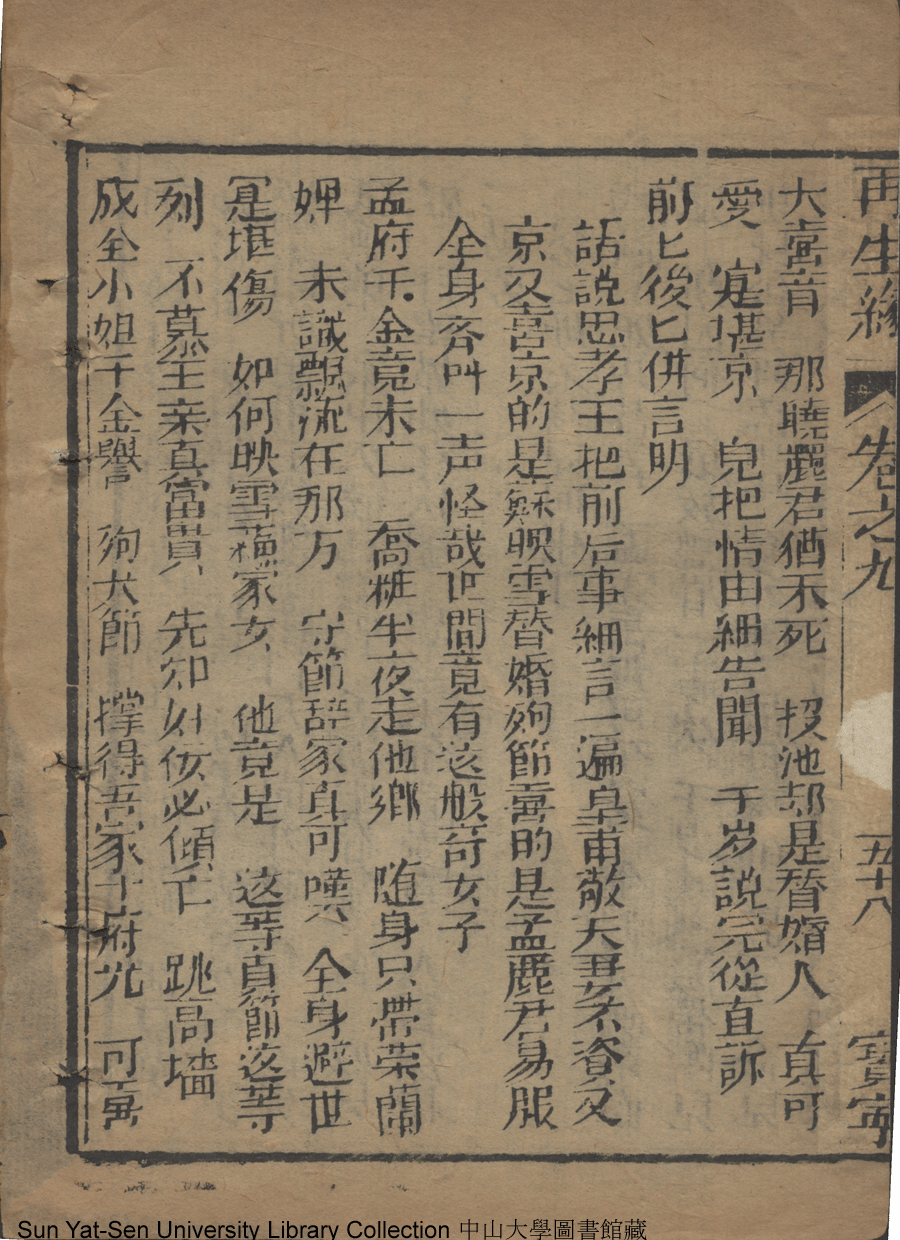 再生緣 卷之九 五十八 寶寧
大喜音 那曉麗君猶未死 投池却是替婚人 真可
愛 寔堪京 皃把情由細告聞 千岁說完從直訴
前匕後匕併言明
話說思孝王把前后事細言一遍皇甫敬夫妻不
京又喜京的是蘇映雪替婚殉節喜的是孟麗君易服
全身齐叫一声怪哉世間竟有这般奇女子
孟府千金竟未亡 喬粧半夜走他鄉 随身只帶荣蘭
婢 未識飄流在那方 守節辞家真可嘆 全身避世
寔堪傷 如何映雪蘓家女 他竟是 这等貞節这等
烈 不慕王亲真富貴 先知奸佞必傾亡 跳高墻
成全小姐千金譽 殉大節 撑得吾家十府光 可